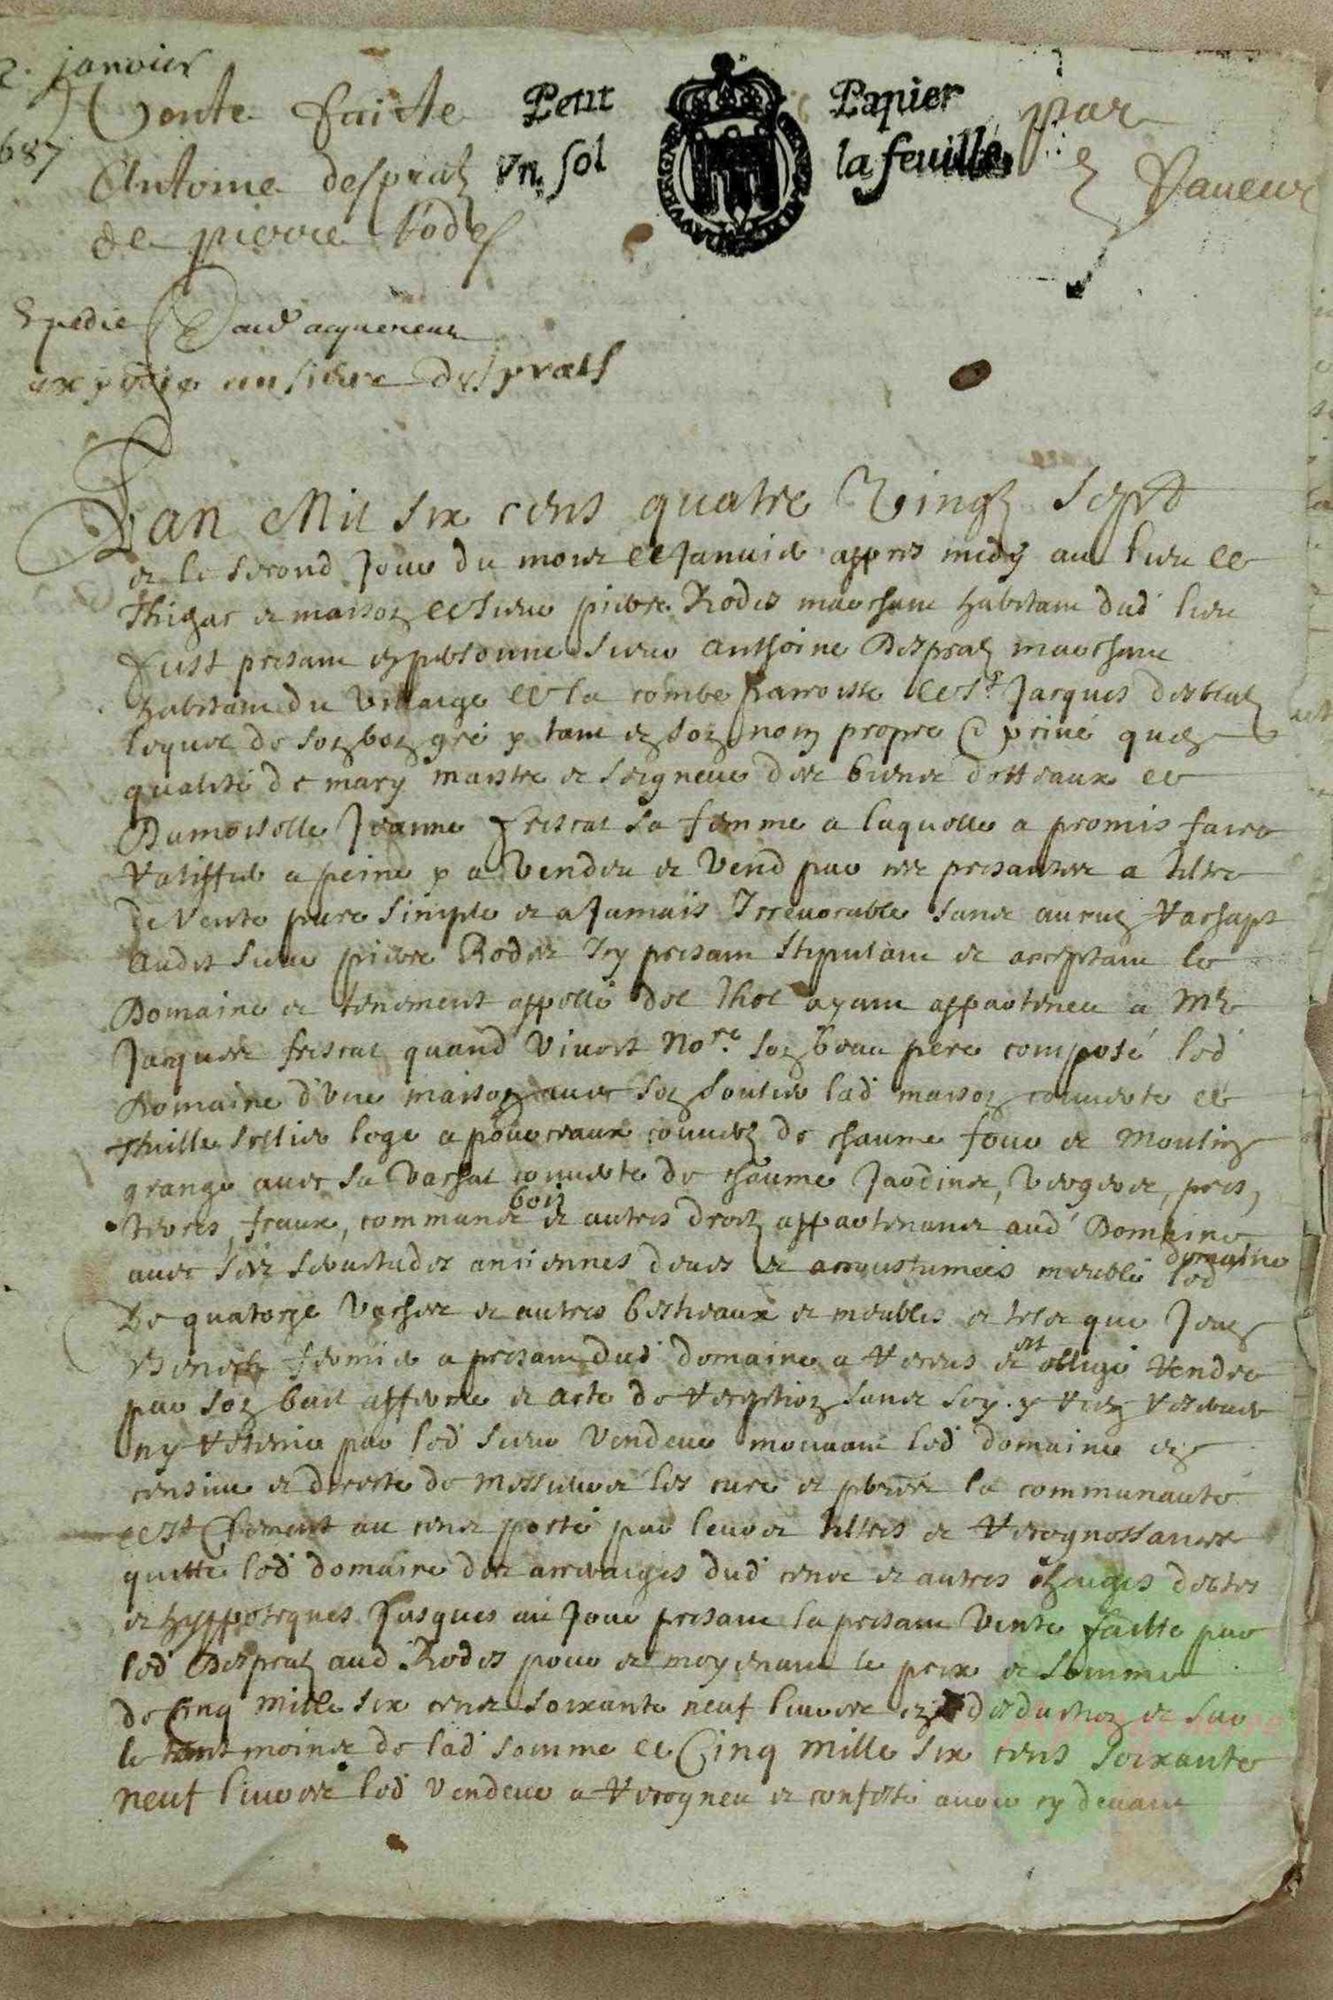 2. janvier
687
Vente faicte par
Antoine despratz
en faveur
de pierre Rodes
Petit Papier
Vn sol la feuille
Expedié aud acquereur
expedié au sieur desprats
Lan Mil six cens quatre Vingtz Sept
et le second Jour du mois de Janvier appres midy au lieu de
et maison de sieur pierre Rodes marchant habitant dud lieu
fust presant en personne sieur anthoine Despratz marchant
habitant du Villaige de la combe parroisse de St Jacques desblatz
lequel de son bon gré & tant en son nom propre & privé que
qualité de mary maistre et seigneur des biens dottaux de
Damoiselle Jeanne friscal sa femme a laquelle a promis faire
ratiffier a peine & a Vendeu et Vend par ces presantes a tiltre
de Vente pure simple et a Jamais Irrevocable sans aucun rachapt
audit sieur pierre Rodes Icy presant stipulant et acceptant le
Domaine et tenement appellé del Thel ayant appartenu a Me
Jacques friscal quand Vivoit Nore son beau pere composé led
Domaine d'Vne maison avec son lad maison couverte de
thuille sellier loge a pourceaux couvertz de chaume four et Moulin
grange avec sa couverte de chaume Jardins, Vergers, pres,
terres, fraux, communs bois et autres droitz appartenans aud Domaine
avec ses servitudes anciennes deues et accoustumées meublé led domaine
De quatorze Vaches et autres bestiaux et meubles et telz que Jean
fermier a presant dud domaine a receus et est obligé rendre
par son bail afferme et acte de reception sans soy y rien reserver
ny retenir par led sieur Vendeur mouvant led domaine en
censive et directe de Messieurs les curé et prebres la communauté
de St Clement au cens porté par leurs tiltres et recognoissances
quitte led domaine des arreraiges dud cens et autres charges debtes
et hyppoteques Jusques au Jour presant la presant Vente faitte par
led Despratz aud Rodes pour et moyenant le prix et somme
de Cinq mille six cens soixante neuf livres en deduction et sur
le tant moins de lad somme de Cinq mille six cens soixante
neuf livres led Vendeur a recogneu et confessé avoir cy devant